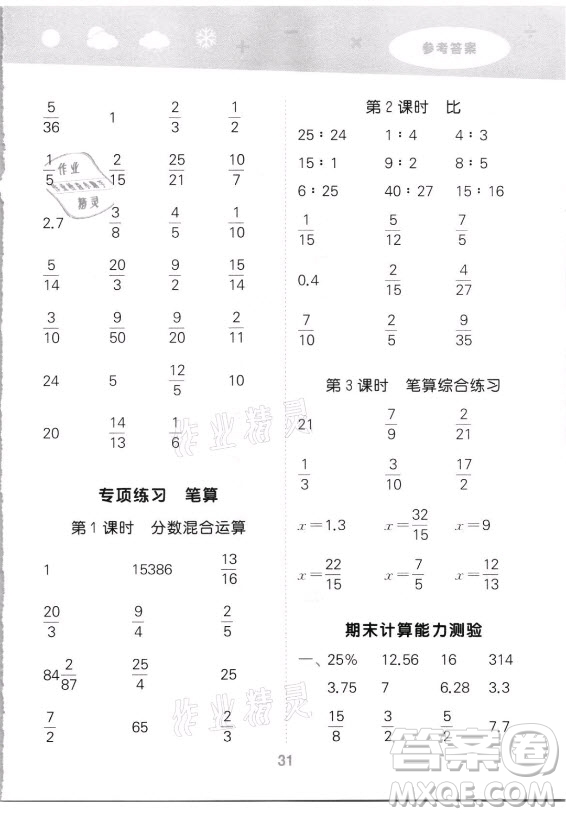 参考答案
5/36 1 2/3 1/2
1/5 2/15 25/21 10/7
2.7 3/8 4/5 1/2
5/14 20/3 9/2 15/14
3/10 9/50 9/20 2/11
24 5 12/5 10
20 14/13 1/6
专项练习 笔算
第1课时 分数混合运算
1 15386 13/16
20/3 9/4 2/5
84 2/87 25/4 25
7/2 65 2/3
第2课时 比
25∶24 1∶4 4∶3
15∶1 9∶2 8∶5
6∶25 40∶27 15∶16
1/15 5/12 7/5
0.4 2/15 4/27
7/10 2/5 9/35
第3课时 笔算综合练习
21 7/9 2/21
1/3 3/10 17/2
x=1.3 x=32/15 x=9
x=22/15 x=7/5 x=12/5
期末计算能力测验
一、25% 12.56 16 314
3.75 7 6.28 3.3
15/8 3/2 5/2 7.7
31
作业精灵
作业精灵
作业
精灵
答案圈
MXQE.COM